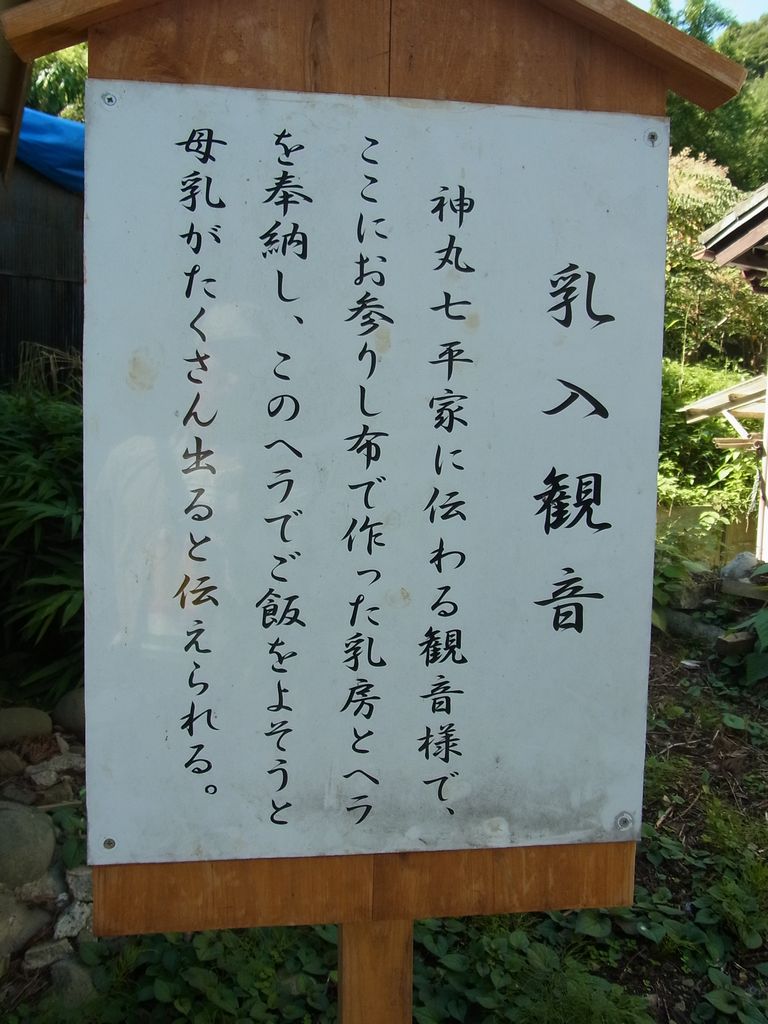 乳入観音
神丸七平家に伝わる観音様で、
ここにお参りし布で作った乳房とヘラ
を奉納し、このヘラでご飯をよそうと
母乳がたくさん出ると伝えられる。